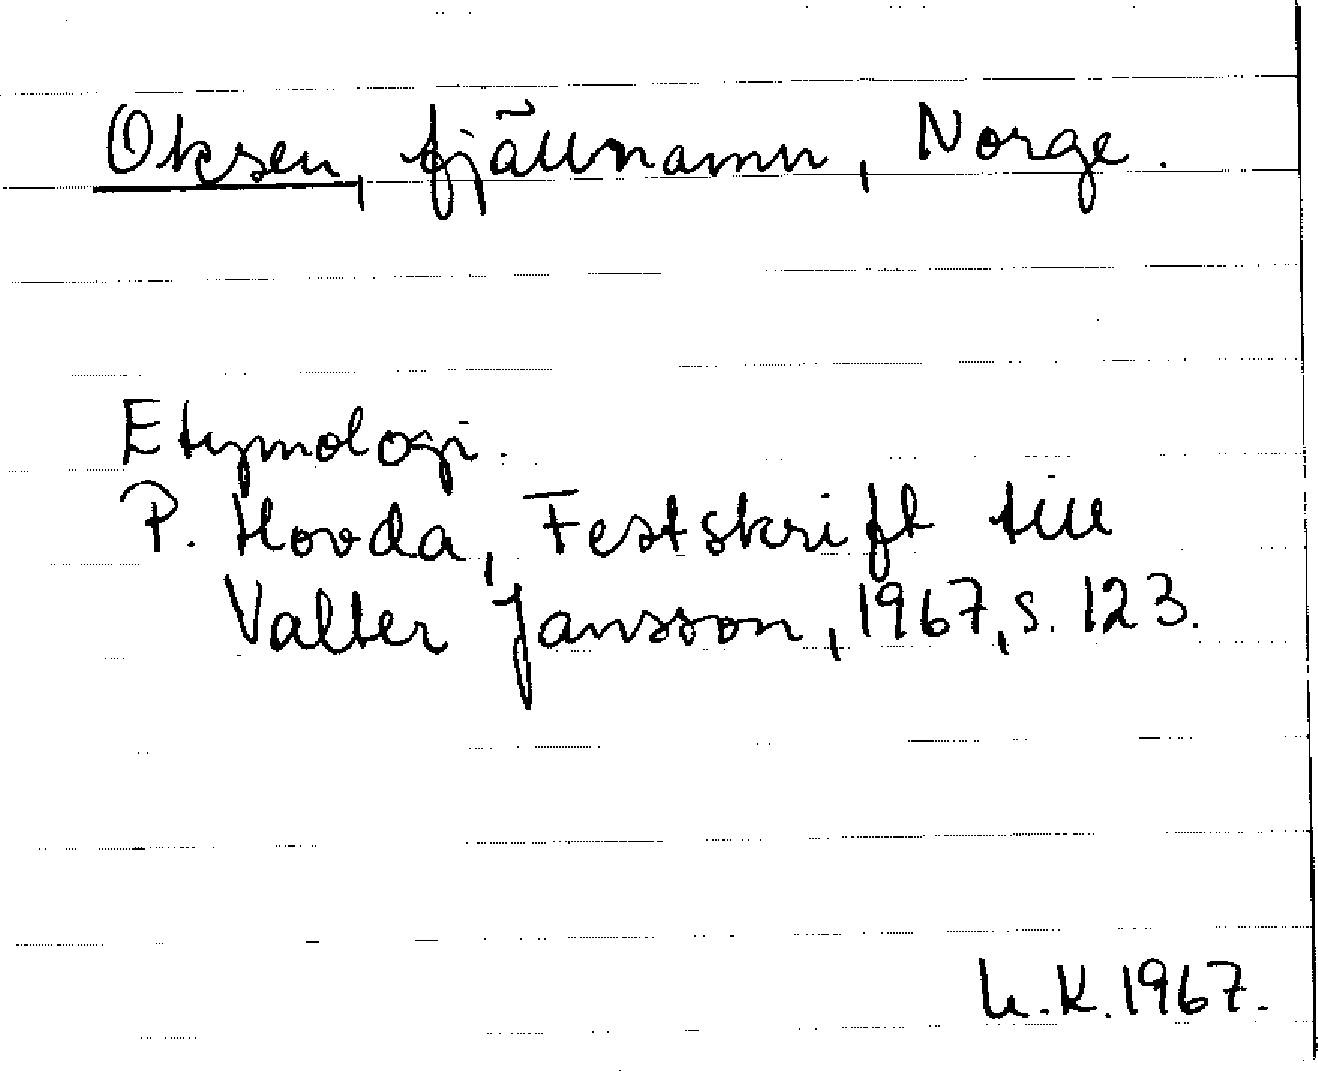 Oksen, fjällnamn, Norge.
Etymologi.
P. Hovda, Festskrift till
Valter Jansson, 1967, s. 123.
L.K. 1967.